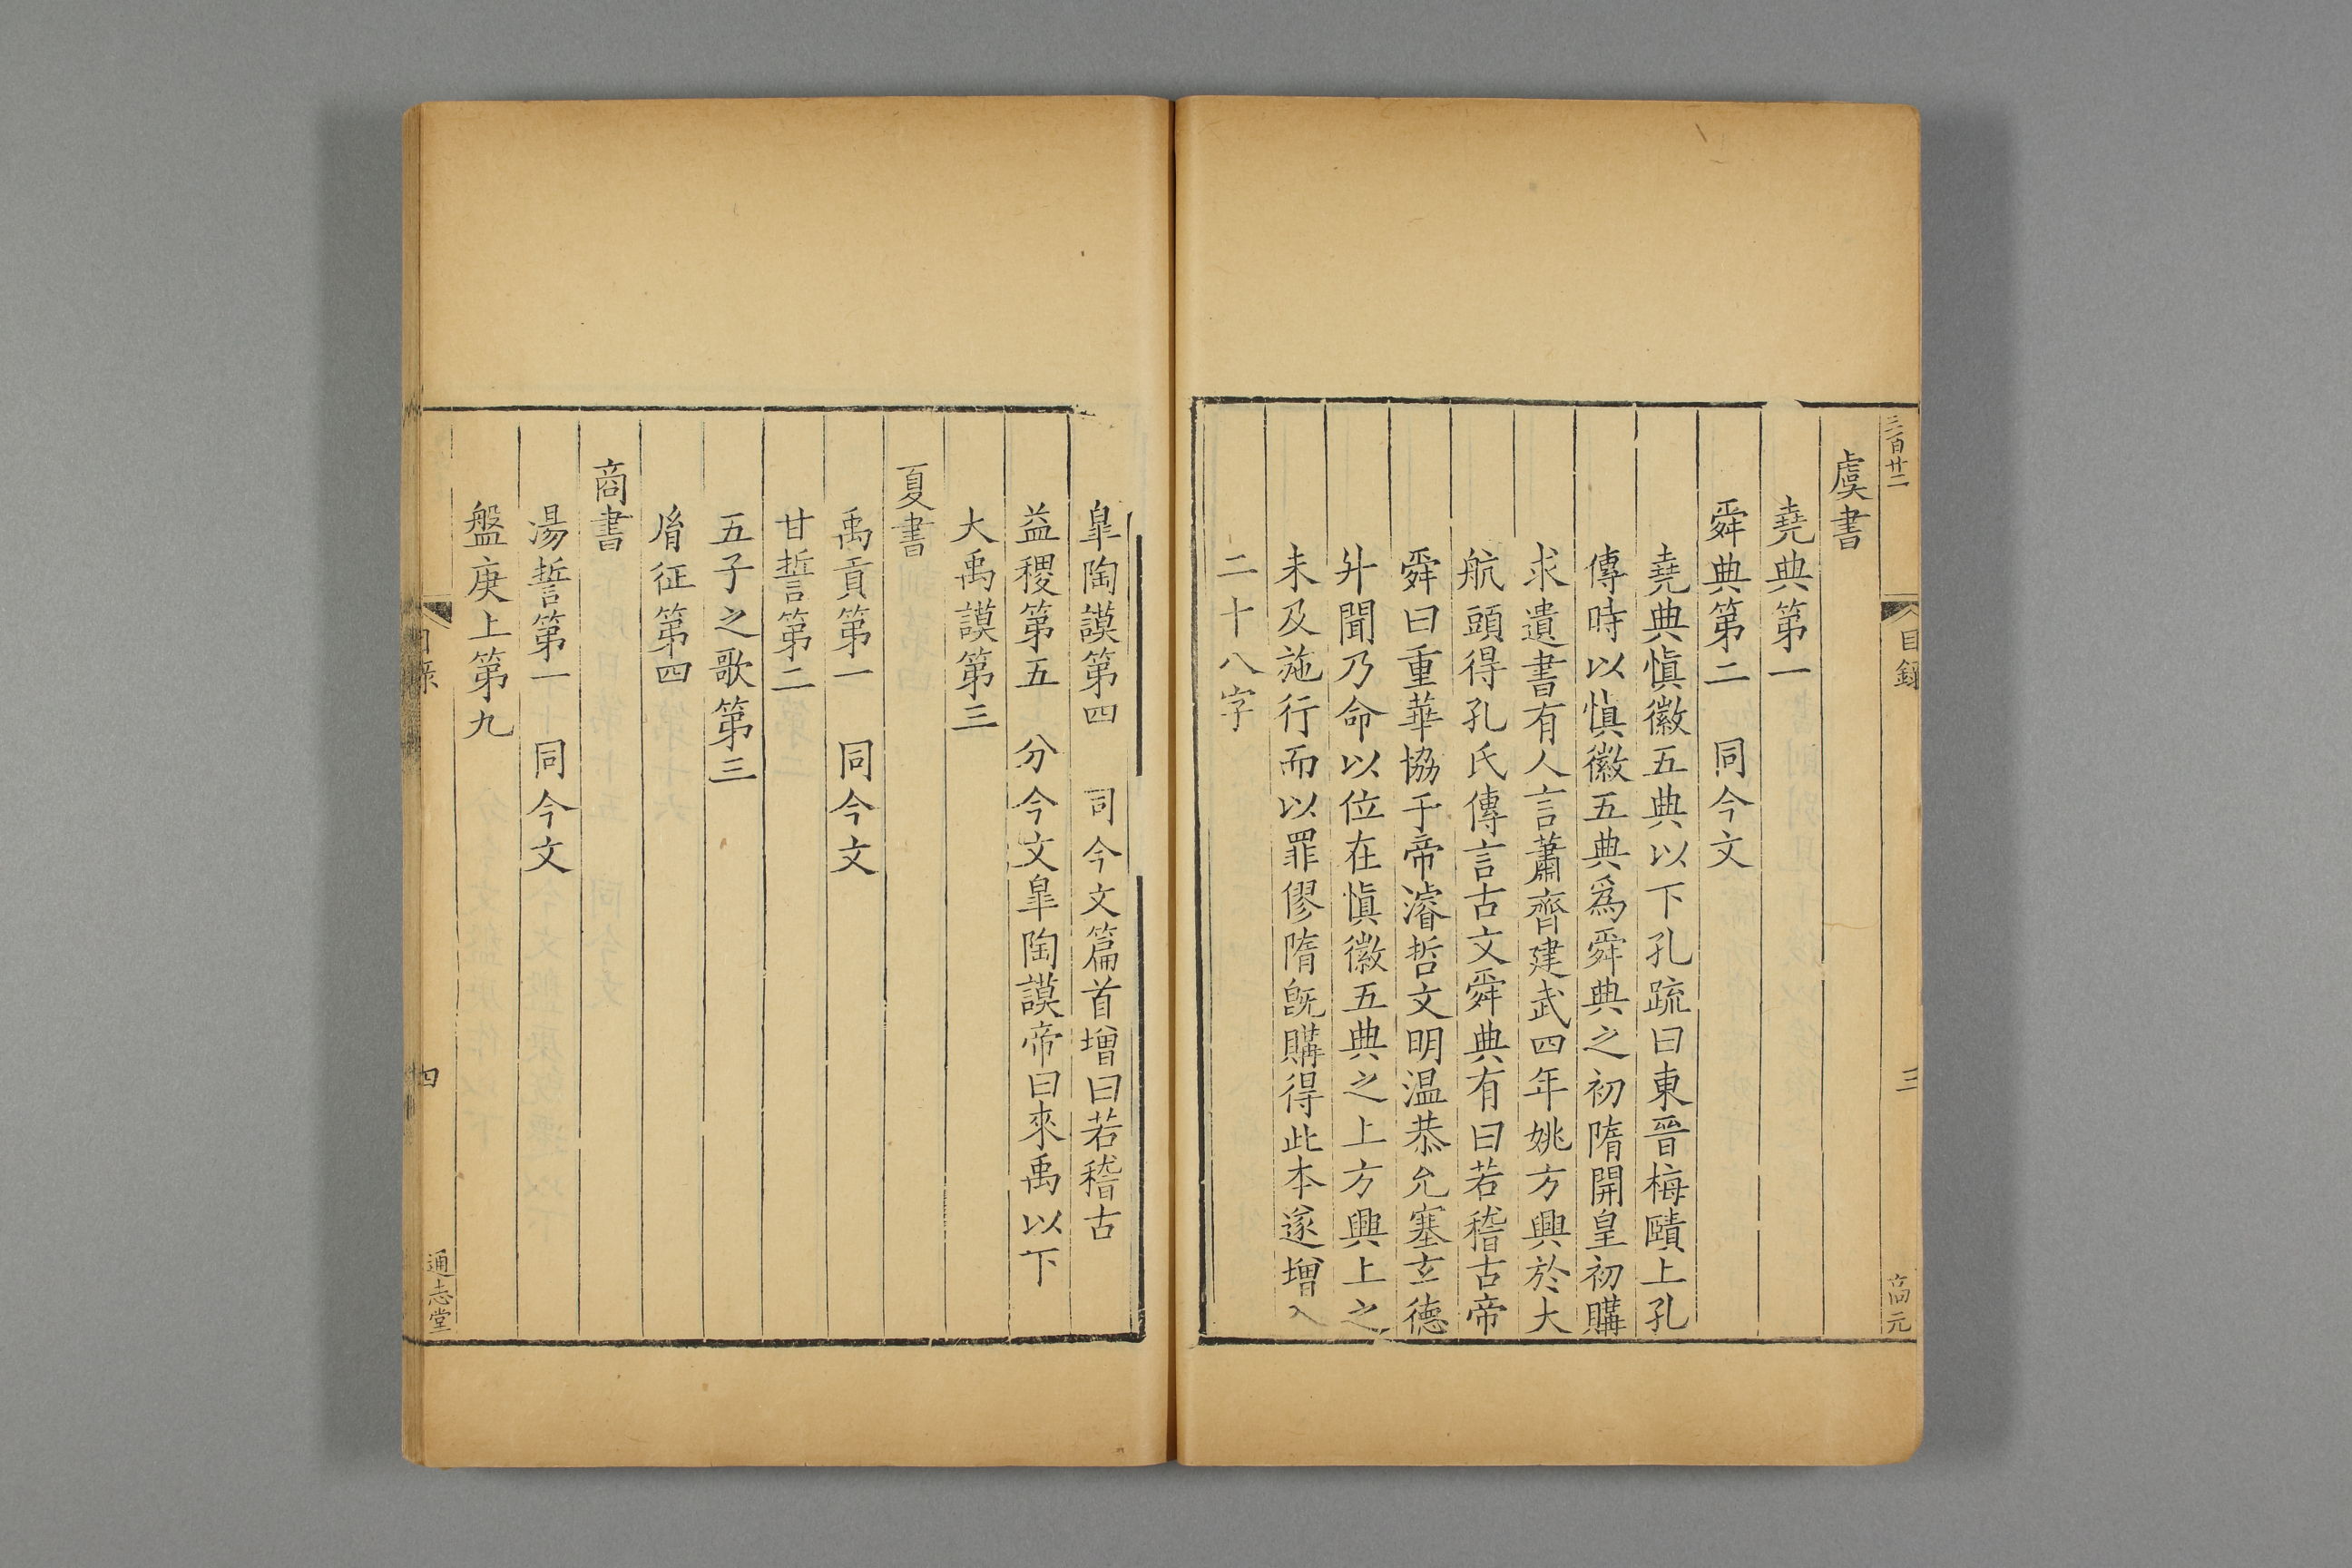 三百廿二
目錄
三
高元
虞書
堯典第一
舜典第二　同今文
堯典愼徽五典以下孔疏曰東晉梅賾上孔
傳時以愼徽五典爲舜典之初隋開皇初購
求遺書有人言蕭齊建武四年姚方興於大
航頭得孔氏傳言古文舜典有曰若稽古帝
舜曰重華協于帝濬哲文明温恭允塞玄德
升聞乃命以位在愼徽五典之上方興上之
未及施行而以罪僇隋旣購得此本遂增入
二十八字
臯陶謨第四　司今文篇首增曰若稽古
益稷第五　分今文臯陶謨帝曰來禹以下
大禹謨第三
夏書
禹貢第一　同今文
甘誓第二
五子之歌第三
胤征第四
商書
湯誓第一　同今文
盤庚上第九
目錄
四
通志堂